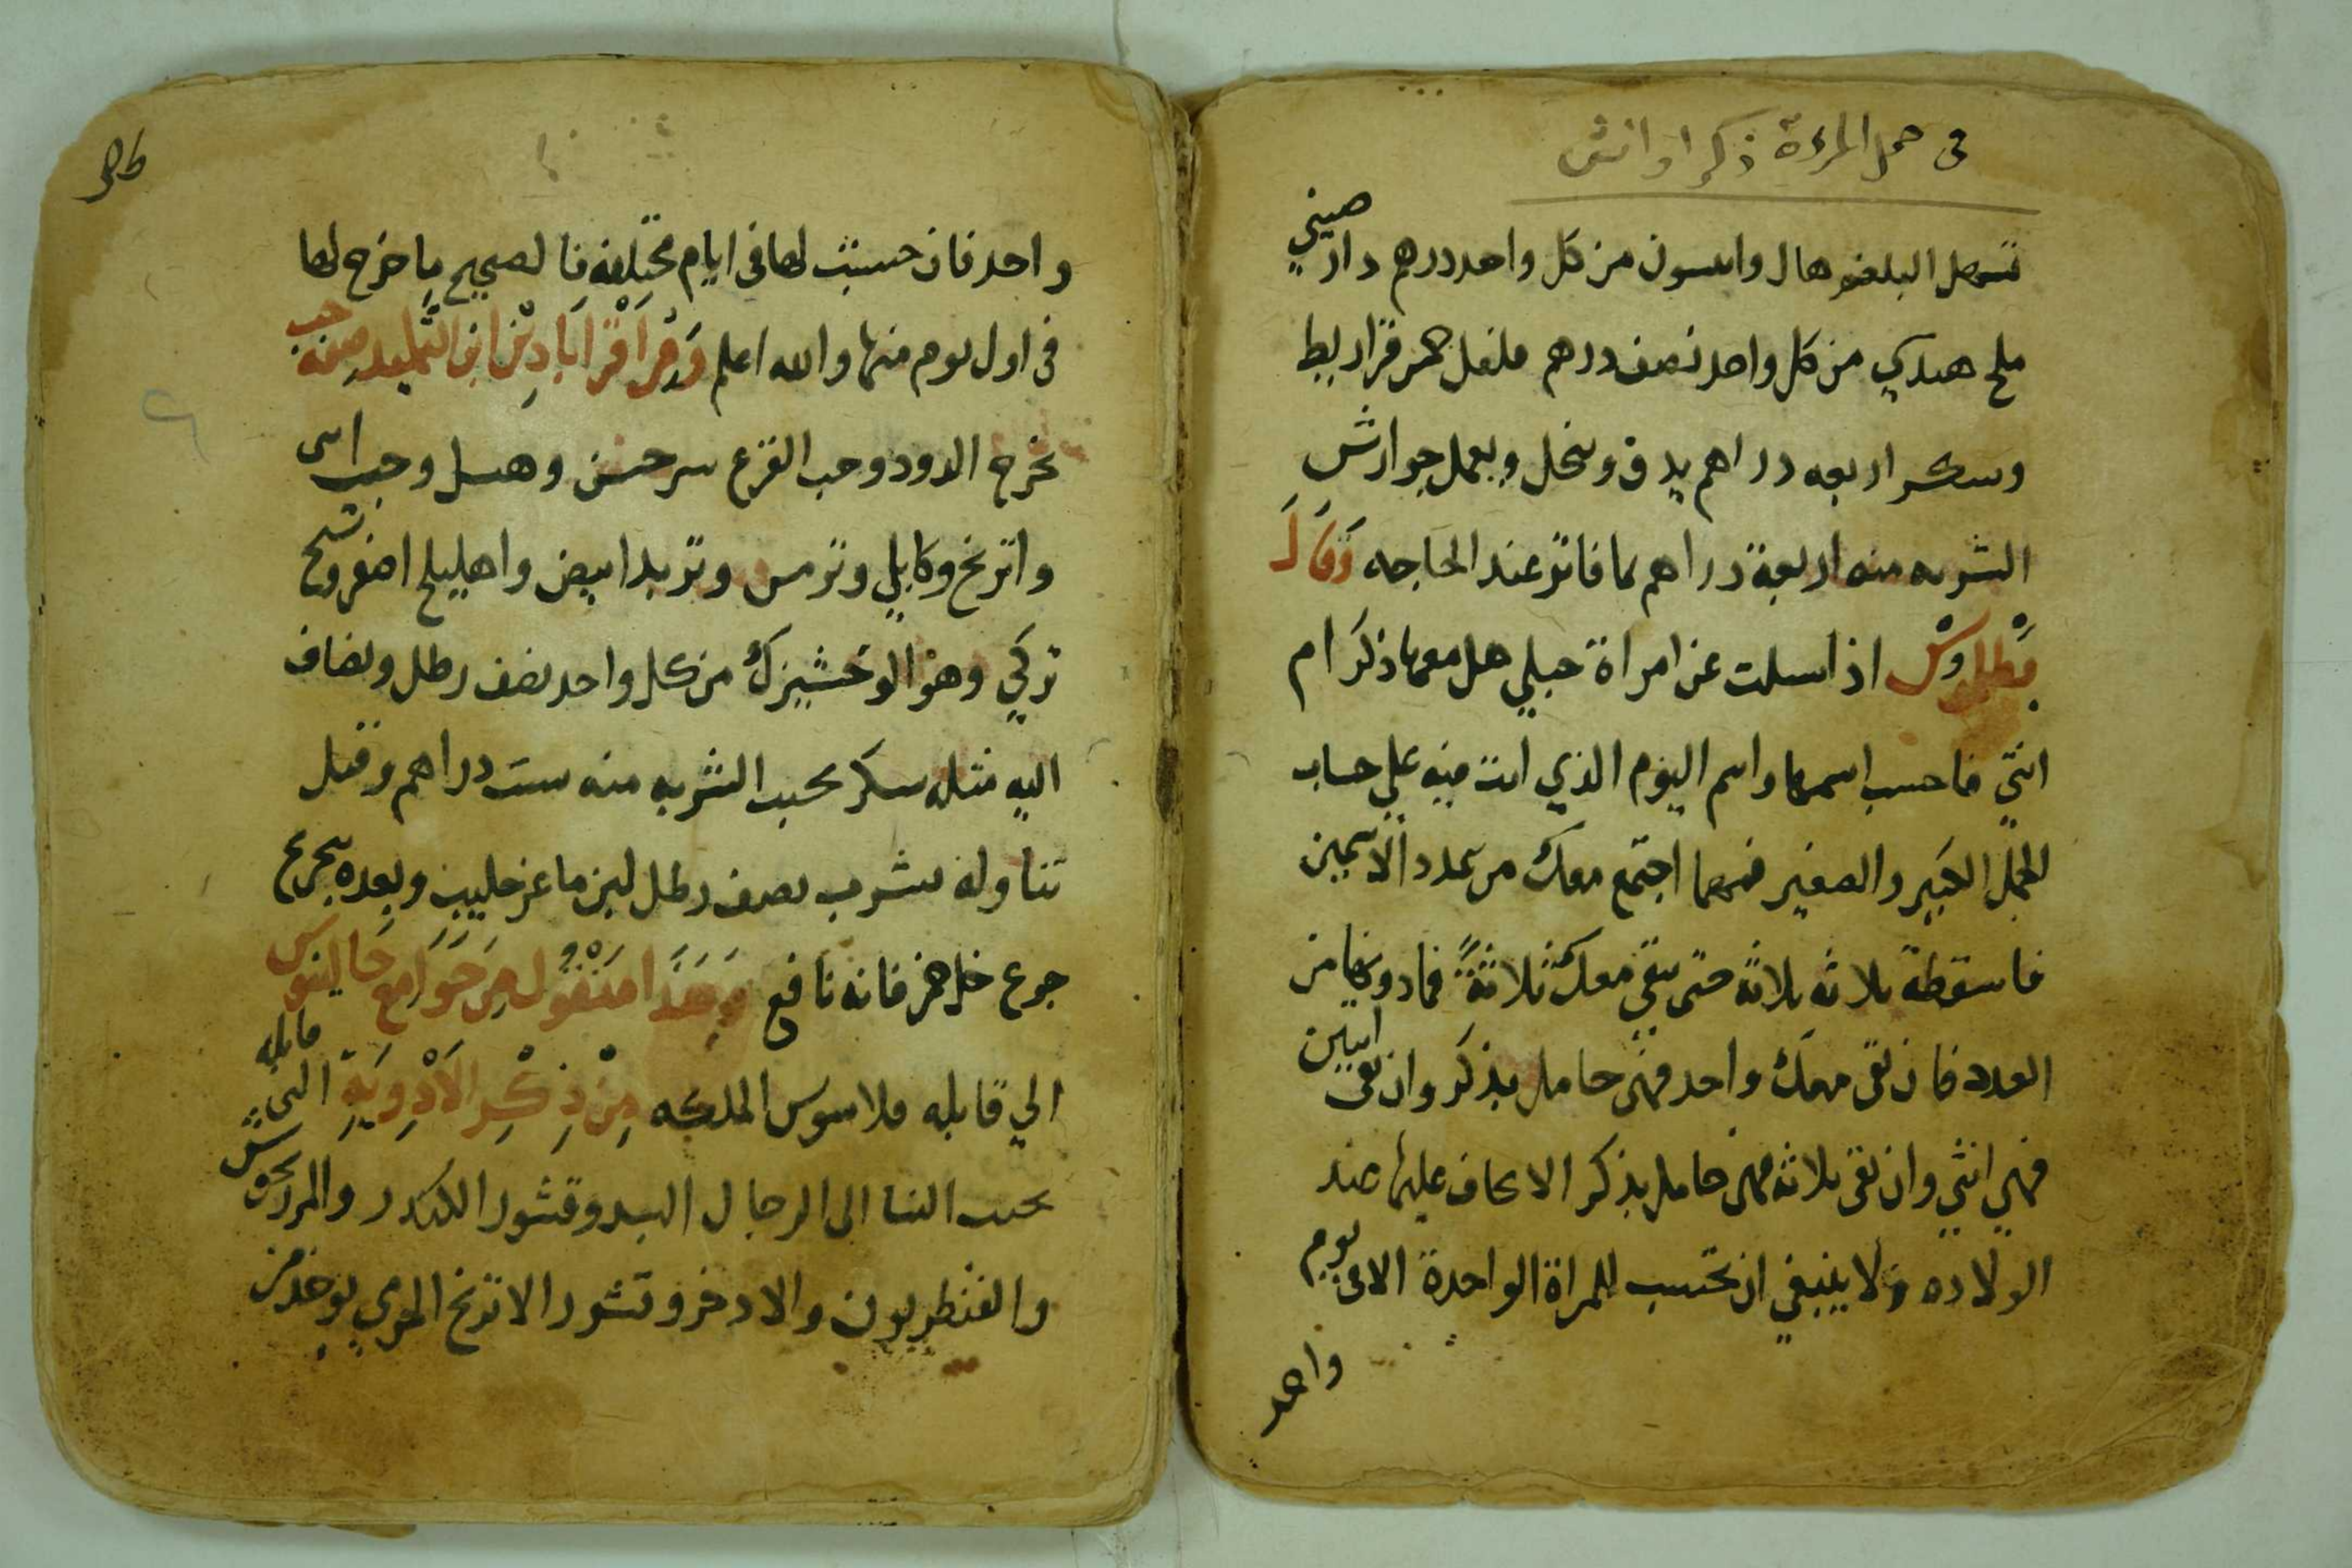 في حمل المرءة ذكر او انثى
تسهل البلغم هال وانيسون من كل واحد درهم دار صيني
ملح هندي من كل واحد نصف درهم فلفل خمس قراريط
وسكر اربعه دراهم يدق وينخل ويعمل جوارش
الشربه منه اربعة دراهم بما فاتر عند الحاجه وَقَالَ
اذا سلت عن امراة حبلي هل معها ذكر ام
انثي فاحسب اسمها واسم اليوم الذي انت فيه علي حساب
الجمل الكبير والصغير فمهما اجتمع معك من عدد الاسمين
فاسقطة ثلاثه ثلاثه حتى يبقي معك ثلاثةً فما دونها من
العدد فان بقى معك واحد فهى حامل بذكر وان بقى اثنين
فهي انثي وان بقى ثلاثه فهى حامل بذكر الا يخاف عليها عند
الولاده ولا ينبغي ان تحتسب للمراة الواحدة الا في يوم
واحد
واحد فان حسبت لها فى ايام مختلفه فالصحيح ما خرج لها
فى اول يوم منها والله اعلم وَمِنْ اَقْرَابَادِيْن ابن التلميد صفة حب
يخرج الدود وحب القرع سرخس وهيل وحب اس
واترنج وكابلي وترمس وتربد ابيض واهليلج اصفر وشيح
تركي وهو الوخشيزك من كل واحد نصف رطل ويضاف
اليه مثله سكر يحبب الشربه منه ست دراهم وقبل
تناوله يشرب نصف رطل لبن ماعز حليب وبعده يتجرع
جرع خل خمر فانه نافع وهَذَا مَنْقُول مِن جَوَامع جَالينوس
الي قابله قلاسوس الملكه مِنْ ذِكْرِ الاَدْوِيَةِ التي قابله
تحبب النسا الى الرجال السيد وقشور الكندر والمرزنجوش
والقنطريون والادخر وقشور الاترنج المري يوخد من